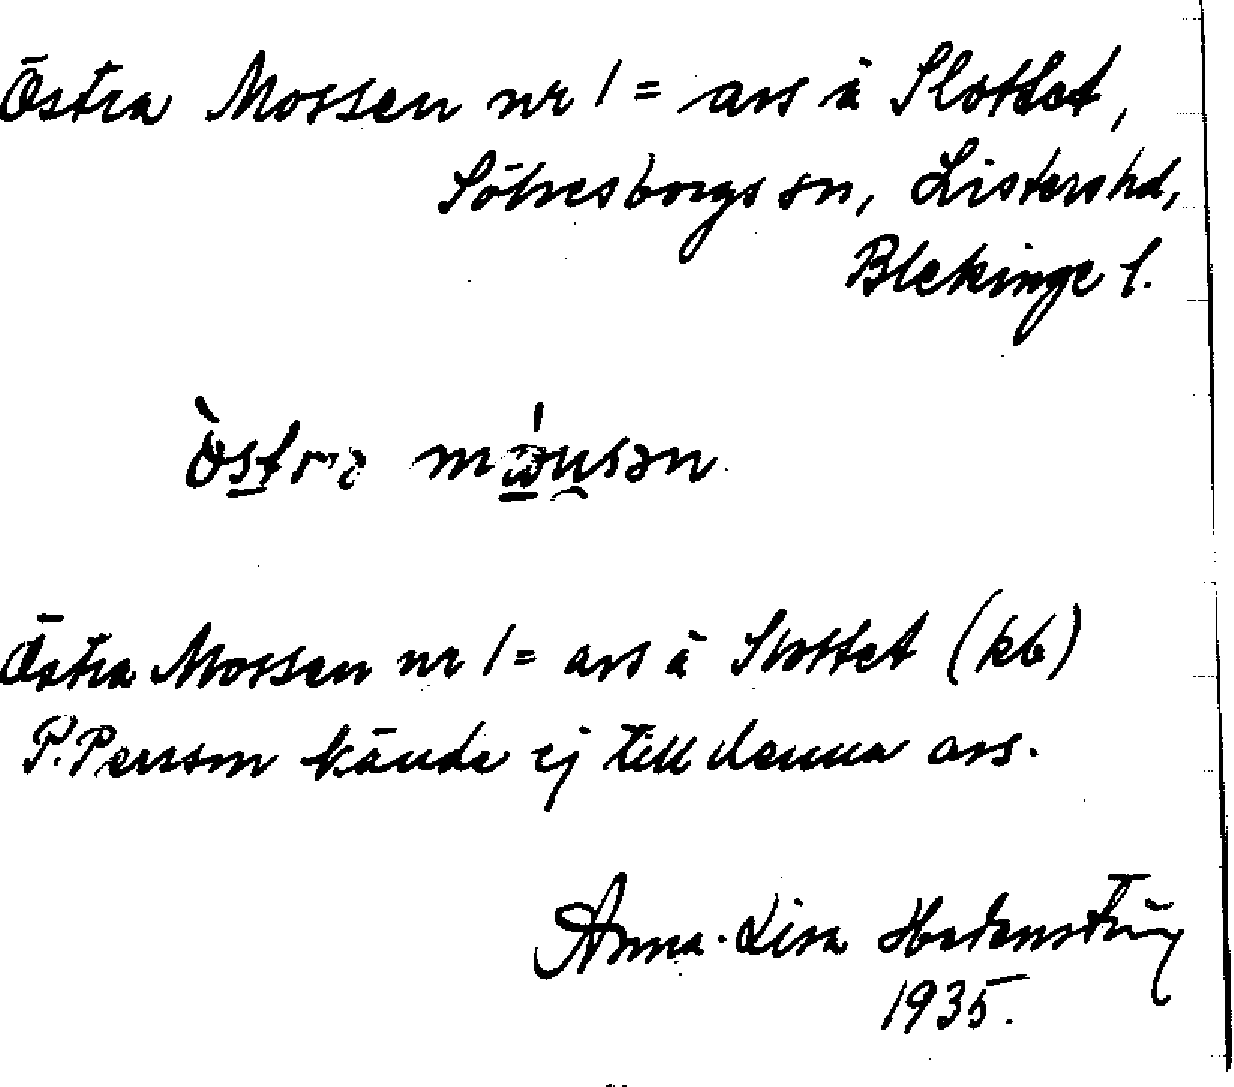 Östra Mossen nr 1 = avs å Slottet,
Sölvesborgs sn, Listers hd,
Blekinge l.
Östra Mossen nr 1 = avs å Slottet (kb)
P. Persson kände ej till denna avs.
Anna-Lisa
1935.